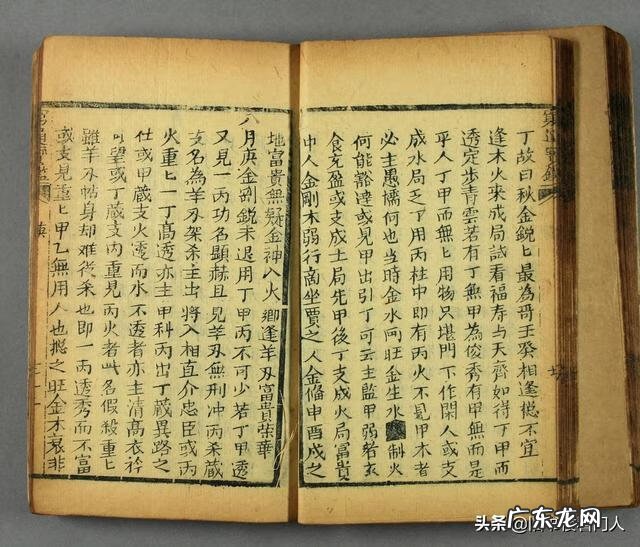 丁故曰秋金銳匕最為奇壬癸相逢摠不宜
逢木火來成局試看福壽与天齊如得丁甲而
透定步青雲若有丁無甲為俊秀有甲無而是
平人丁甲而無匕用物只堪門下作閑人或支
成水局乏了用丙柱中即有丙火不見甲木者
必主愚懦何也当時金水冋旺金生水制火
何能豁達或見甲出引丁可云主監甲弱若亥
食充盈或支成土局先甲後丁支成火局冨貴
中人金剛木弱行商坐賈之人金備申酉成之
地富貴無疑金神入火鄉逢羊刃冨貴荣華
八月庚金剛銳未退用丁甲丙不可少若丁甲透
又見一丙功名顯赫且見羊刃無刑冲丙杀蔵
支名為羊刃架杀主出將入相直介忠臣或丙
火重匕一丁髙透亦主甲科丙出丁蔵異路之
仕或甲蔵支火透而水不透者亦主清髙衣衿
可望或丁蔵支内重見丙火者此名假殺重匕
雖羊刃帖身却难從杀也即一丙透秀而不富
或支見重匕甲乙無用人也摠之旺金木衰非
庚
广东龙网